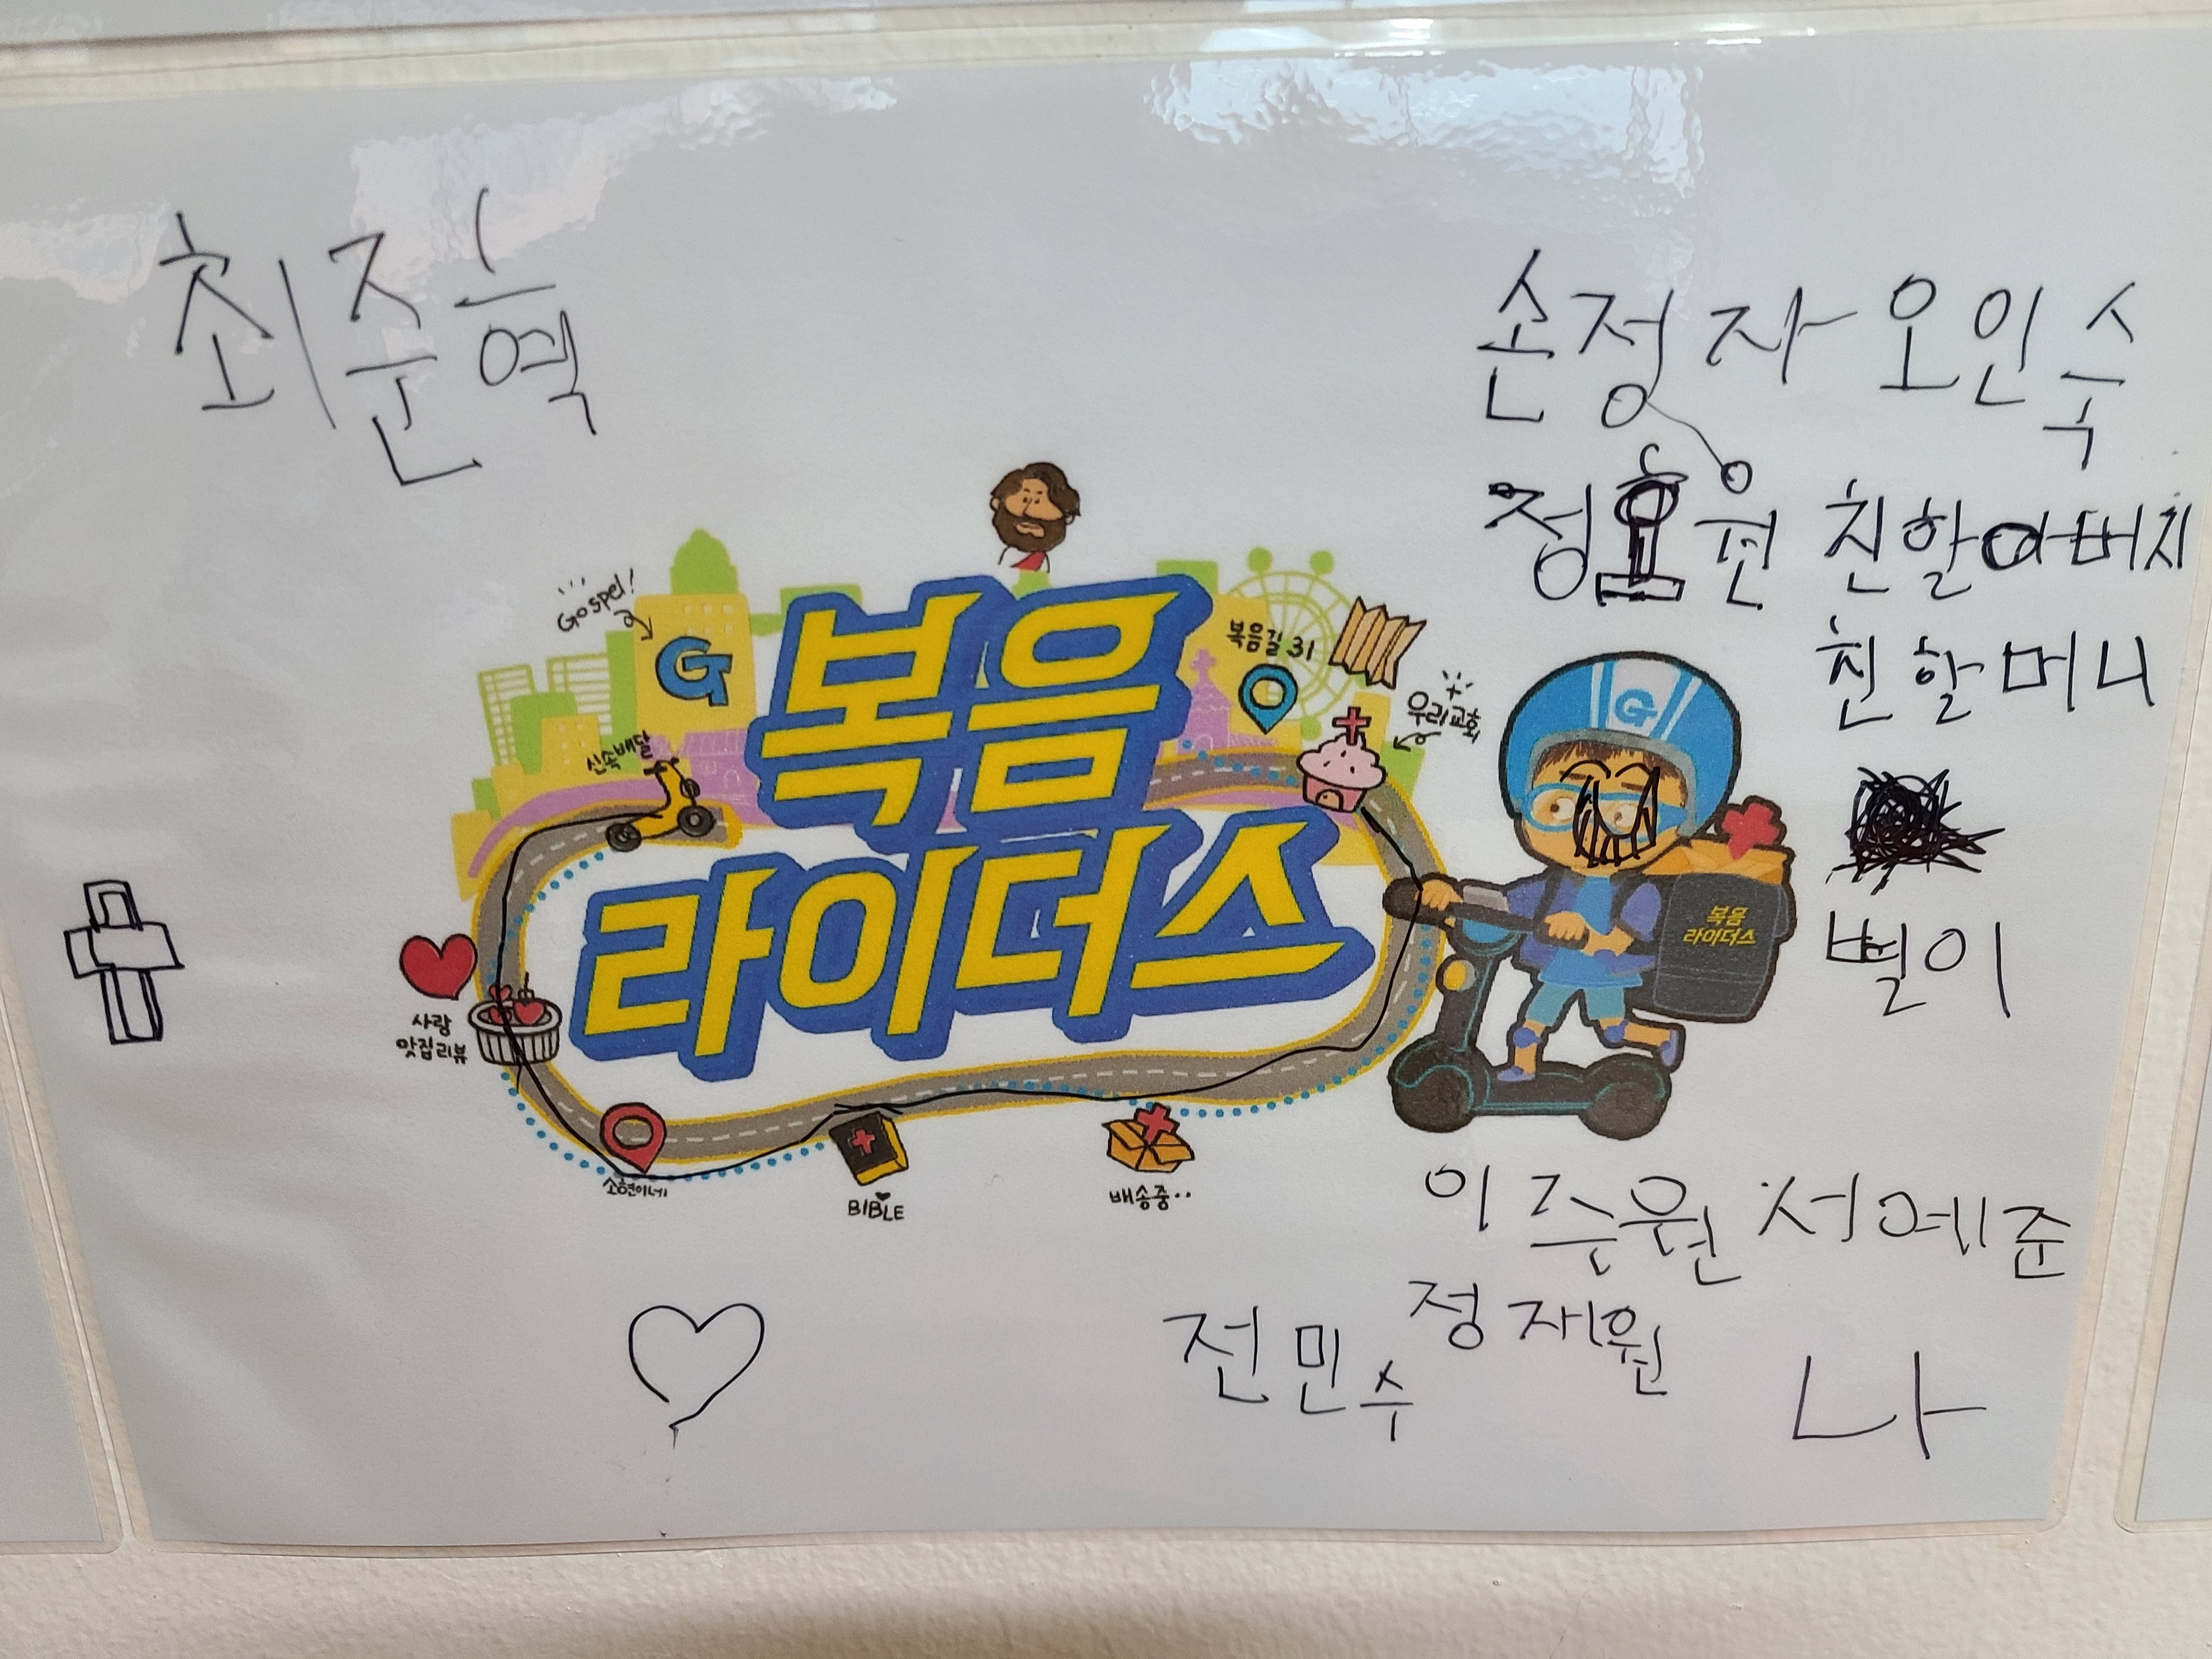 최준혁
손정자 오인수
친할아버지
친할머니
별이
Gospel!
G
복음
라이더스
복음길 31
우리교회
신속배달
G
복음
라이더스
사랑
맛집리뷰
소현이네
BIBLE
배송중..
이주원 서예준
정재원
전민수
나